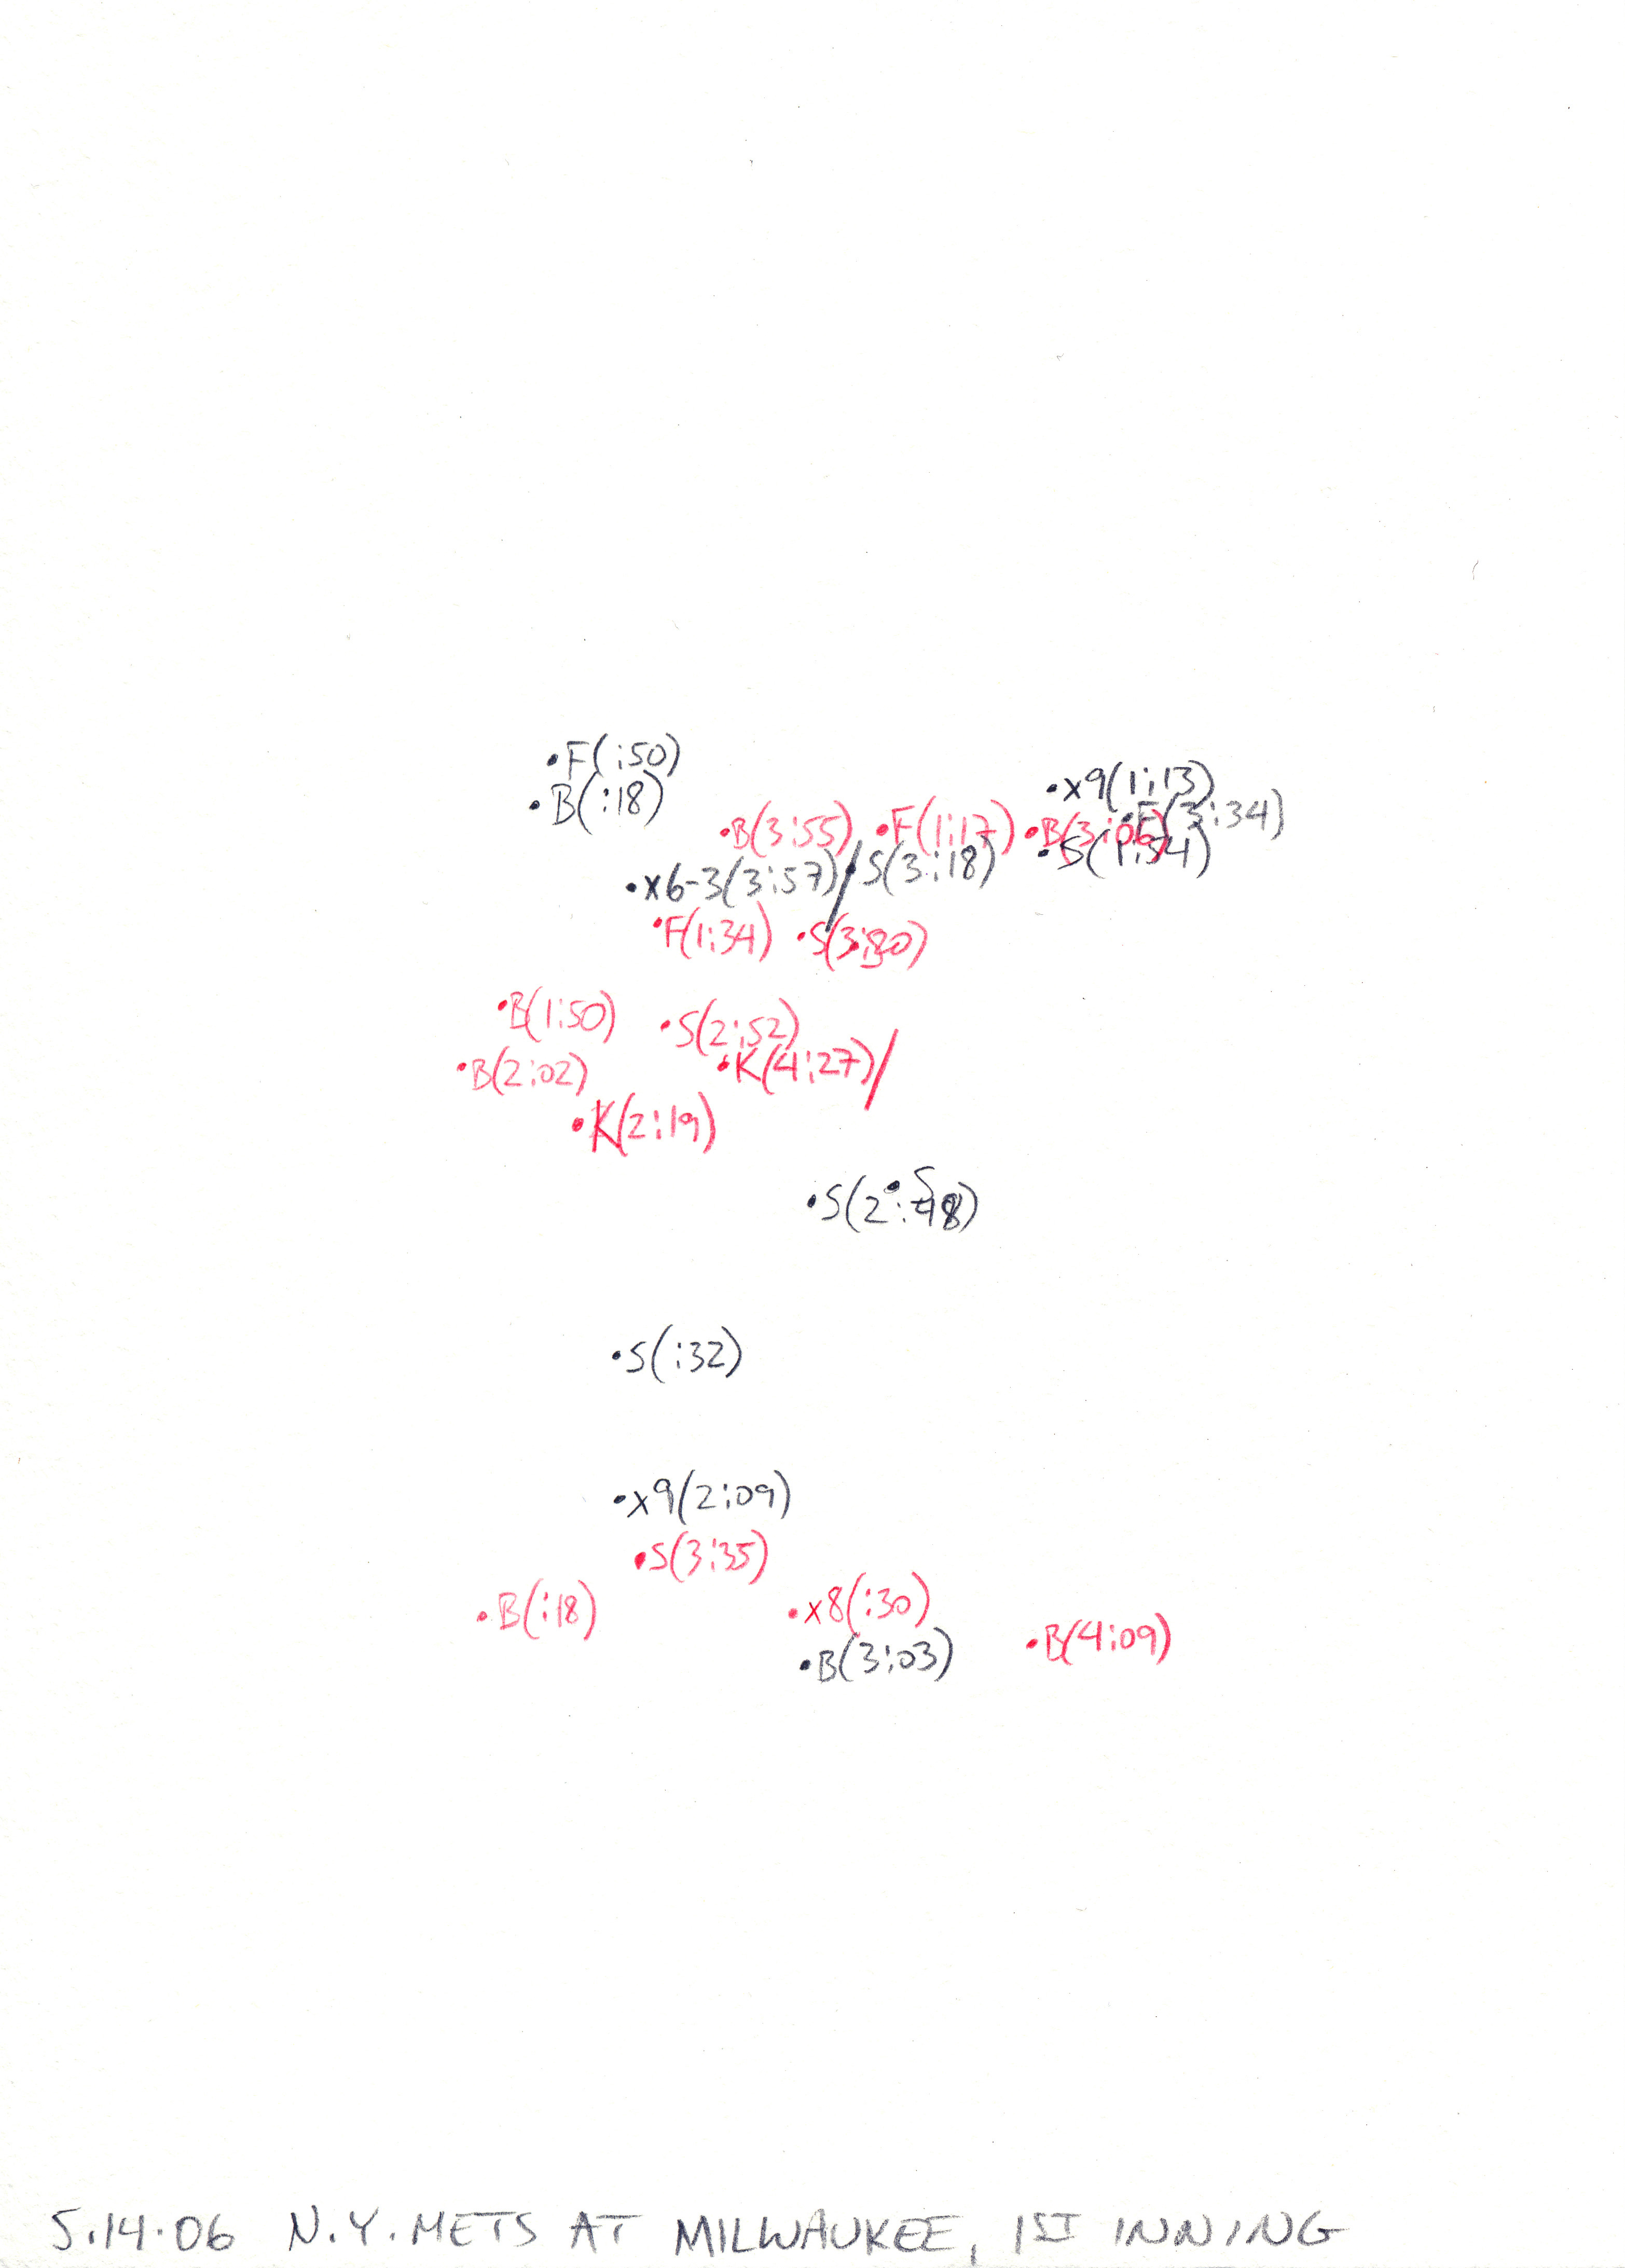 F(:50)
B(:18)
x9(1:13)
F(3:34)
B(3:55)
F(1:17)
B(3:06)
S(1:54)
x6-3(3:57)/
S(3:18)
F(1:34)
B(1:50)
S(2:52)
B(2:02)
K(4:27)/
K(2:19)
S(:32)
x9(2:09)
S(3:35)
B(:18)
x8(:30)
B(3:03)
B(4:09)
5.14.06 N.Y. METS AT MILWAUKEE, 1ST INNING